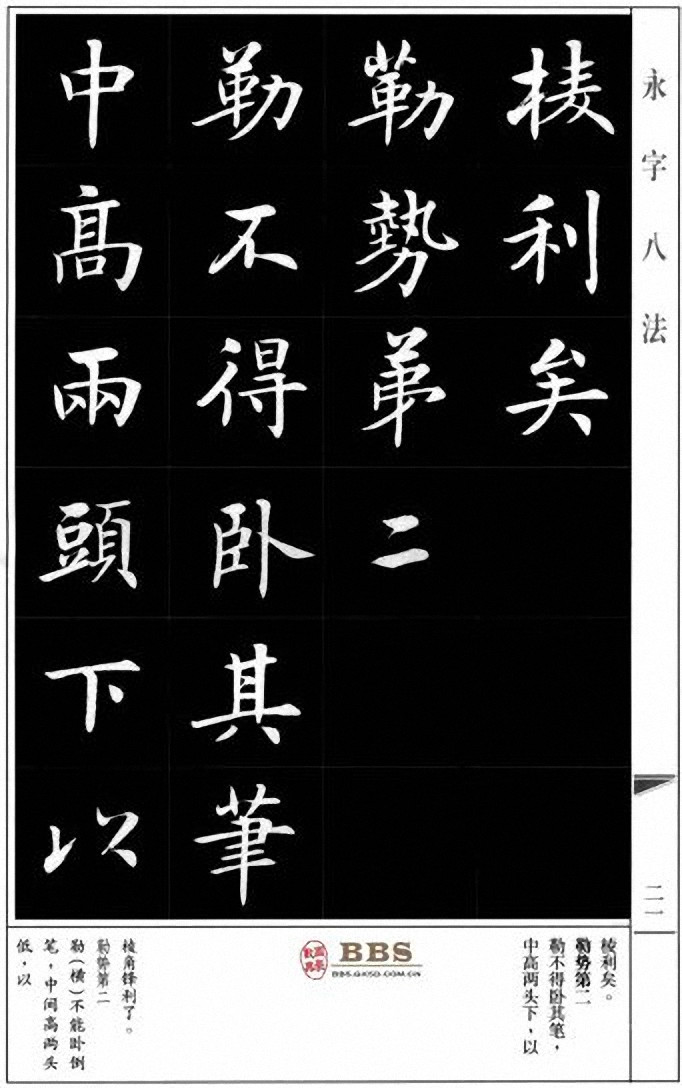 永字八法
二一
棱利矣
勒勢弟二
勒不得卧其筆
中高兩頭下以
棱利矣。
勒势第二
勒不得卧其笔，
中高两头下，以
BBS
BBS.GXSD.COM.CN
棱角锋利了。
勒势第二
勒(横)不能卧倒
笔，中间高两头
低，以